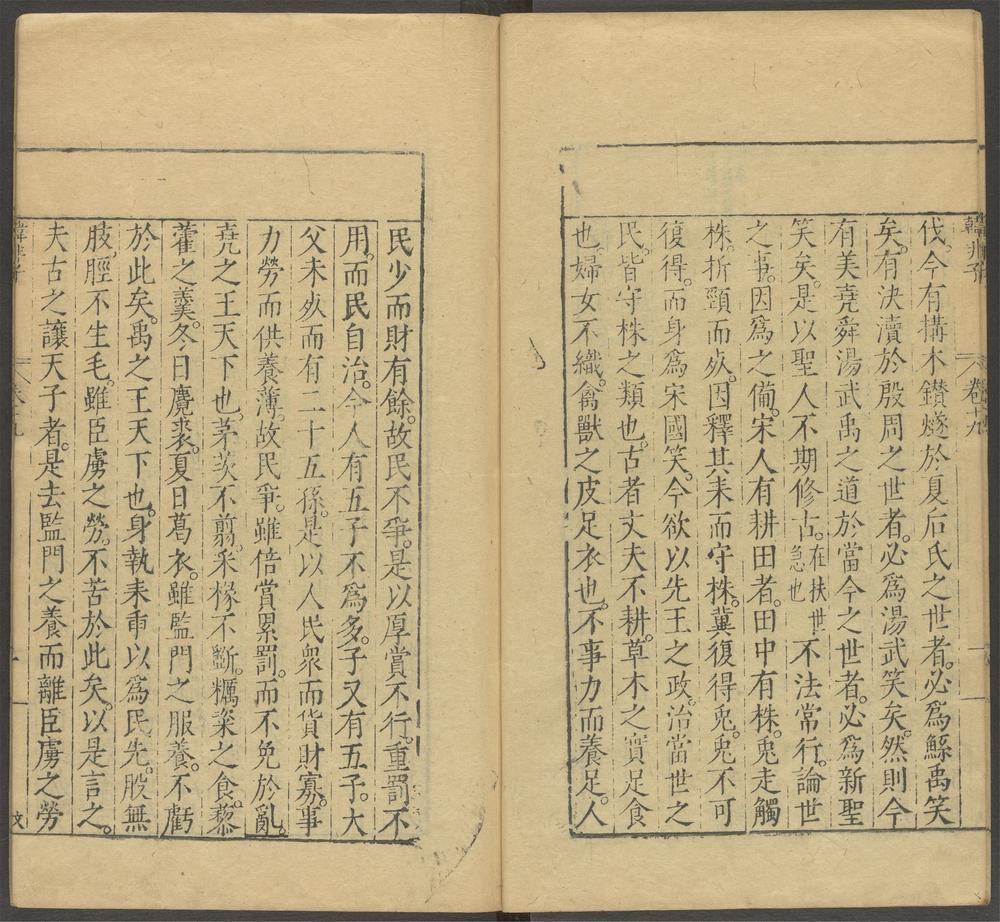 韓非子 卷十九 一
伐。今有搆木鑽燧於夏后氏之世者。必爲鯀禹笑
矣。有決瀆於殷周之世者。必爲湯武笑矣。然則今
有美堯舜湯武禹之道於當今之世者。必爲新聖
笑矣。是以聖人不期修古。在扶世急也不法常行。論世
之事。因爲之備。宋人有耕田者。田中有株。兎走觸
株。折頸而死。因釋其耒而守株。冀復得兎。兎不可
復得。而身爲宋國笑。今欲以先王之政。治當世之
民。皆守株之類也。古者丈夫不耕。草木之實足食
也。婦女不織。禽獸之皮足衣也。不事力而養足。人
民少而財有餘。故民不爭。是以厚賞不行。重罰不
用。而民自治。今人有五子不爲多。子又有五子。大
父未死而有二十五孫。是以人民衆而貨財寡。事
力勞而供養薄。故民爭。雖倍賞累罰。而不免於亂。
堯之王天下也。茅茨不翦。采椽不斷。糲粢之食。藜
藿之羹。冬日麑裘。夏日葛衣。雖監門之服養。不虧
於此矣。禹之王天下也。身執耒臿以爲民先。股無
胈。脛不生毛。雖臣虜之勞。不苦於此矣。以是言之。
夫古之讓天子者。是去監門之養而離臣虜之勞